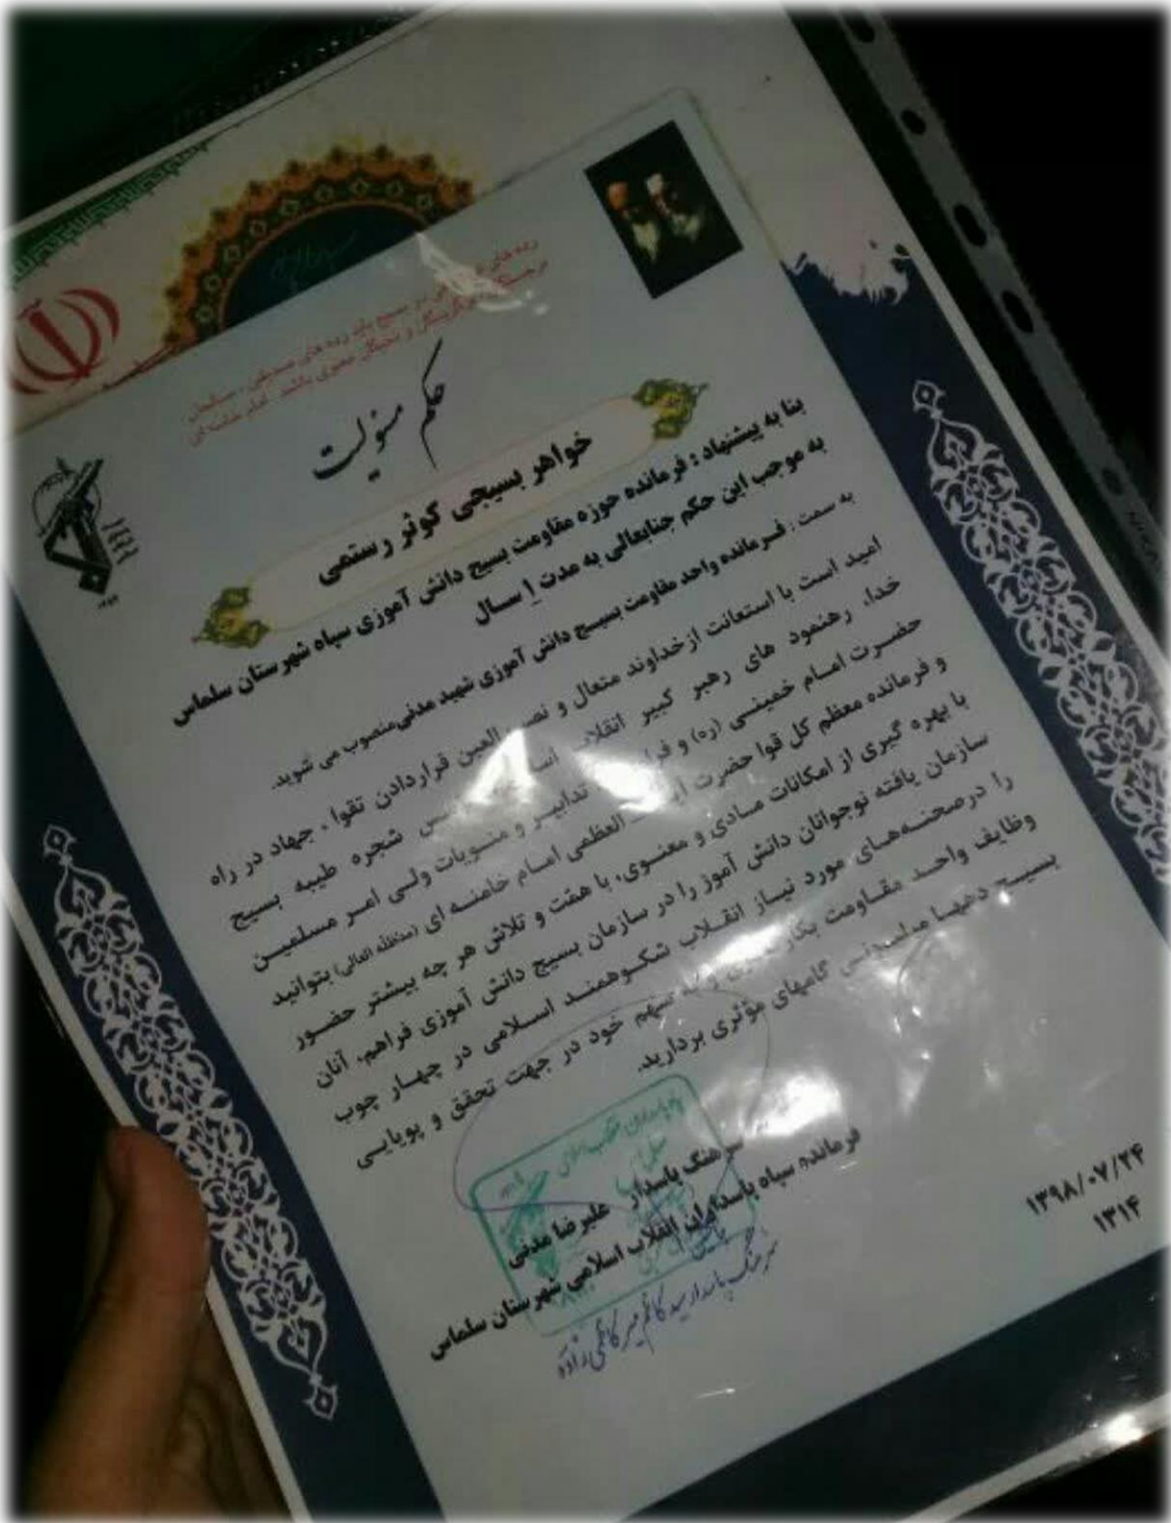 رده های
در بسیج باید رده های صدیقین، صالحان
و نخبگان معنوی باشند. امام خامنه ای
حکم مسئولیت
خواهر بسیجی کوثر رستمی
بنا به پیشنهاد : فرمانده حوزه مقاومت بسیج دانش آموزی سپاه شهرستان سلماس
به موجب این حکم جنابعالی به مدت ۱ سال
به سمت : فرمانده واحد مقاومت بسیج دانش آموزی شهید مدنی منصوب می شوید.
امید است با استعانت از خداوند متعال و نصب العین قراردادن تقوا ، جهاد در راه
خدا، رهنمود های رهبر کبیر انقلاب شجره طیبه بسیج
حضرت امام خمینی (ره) و تدابیر و منویات ولی امر مسلمین
و فرمانده معظم کل قوا حضرت العظمی امام خامنه ای (مدظله العالی) بتوانید
با بهره گیری از امکانات مادی و معنوی، با همت و تلاش هر چه بیشتر حضور
سازمان یافته نوجوانان دانش آموز را در سازمان بسیج دانش آموزی فراهم، آنان
را درصحنه های مورد نیاز انقلاب شکوهمند اسلامی در چهار چوب
وظایف واحد مقاومت سهم خود در جهت تحقق و پویایی
بسیج دهها میلیونی گامهای مؤثری بردارید.
سرهنگ پاسدار علیرضا مدنی
فرمانده سپاه پاسداران انقلاب اسلامی شهرستان سلماس
سرهنگ پاسدار سید کاظم میرکاظمی زاده
۱۳۹۸/۰۷/۲۴
۱۳۱۴